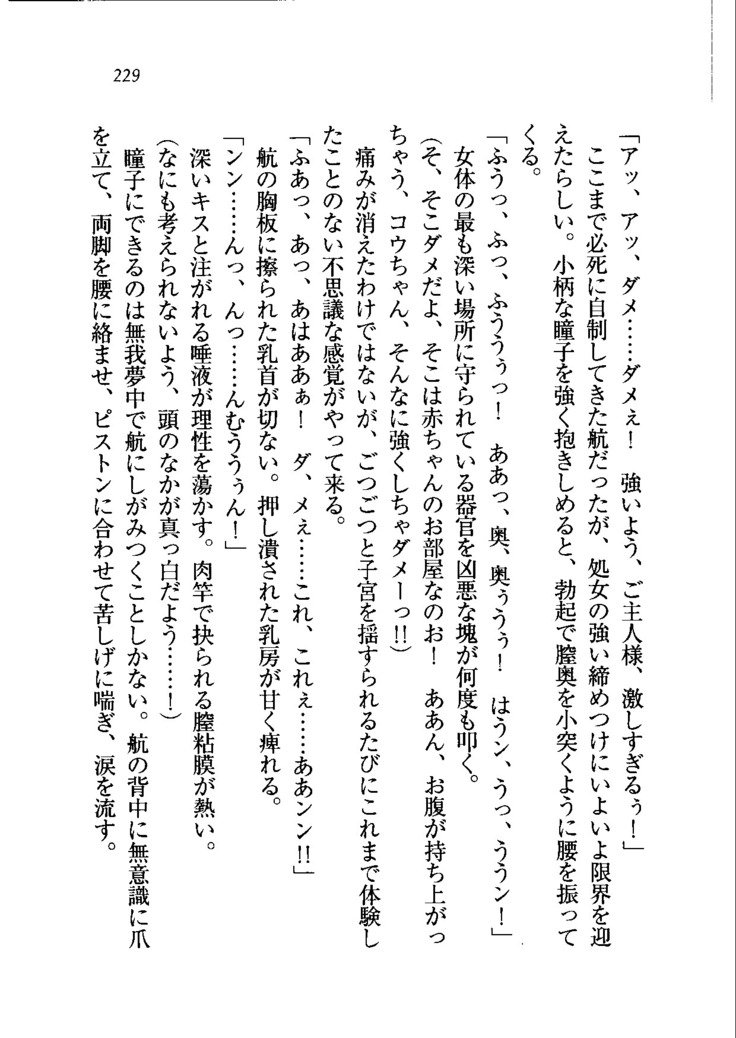 229
「アッ、アッ、ダメ……ダメぇ！　強いよう、ご主人様、激しすぎるぅ！」
ここまで必死に自制してきた航だったが、処女の強い締めつけにいよいよ限界を迎
えたらしい。小柄な瞳子を強く抱きしめると、勃起で膣奥を小突くように腰を振って
くる。
「ふうっ、ふっ、ふううぅっ！　ああっ、奥、奥ぅうぅ！　はうン、うっ、ううン！」
女体の最も深い場所に守られている器官を凶悪な塊が何度も叩く。
（そ、そこダメだよ、そこは赤ちゃんのお部屋なのお！　ああん、お腹が持ち上がっ
ちゃう、コウちゃん、そんなに強くしちゃダメーっ!!）
痛みが消えたわけではないが、ごつごつと子宮を揺すられるたびにこれまで体験し
たことのない不思議な感覚がやって来る。
「ふあっ、あっ、あはああぁ！　ダ、メぇ……これ、これぇ……ああンン!!」
航の胸板に擦られた乳首が切ない。押し潰された乳房が甘く痺れる。
「ンン……んっ、んっ……んむううぅん！」
深いキスと注がれる唾液が理性を蕩かす。肉竿で抉られる膣粘膜が熱い。
（なにも考えられないよう、頭のなかが真っ白だよう……！）
瞳子にできるのは無我夢中で航にしがみつくことしかない。航の背中に無意識に爪
を立て、両脚を腰に絡ませ、ピストンに合わせて苦しげに喘ぎ、涙を流す。